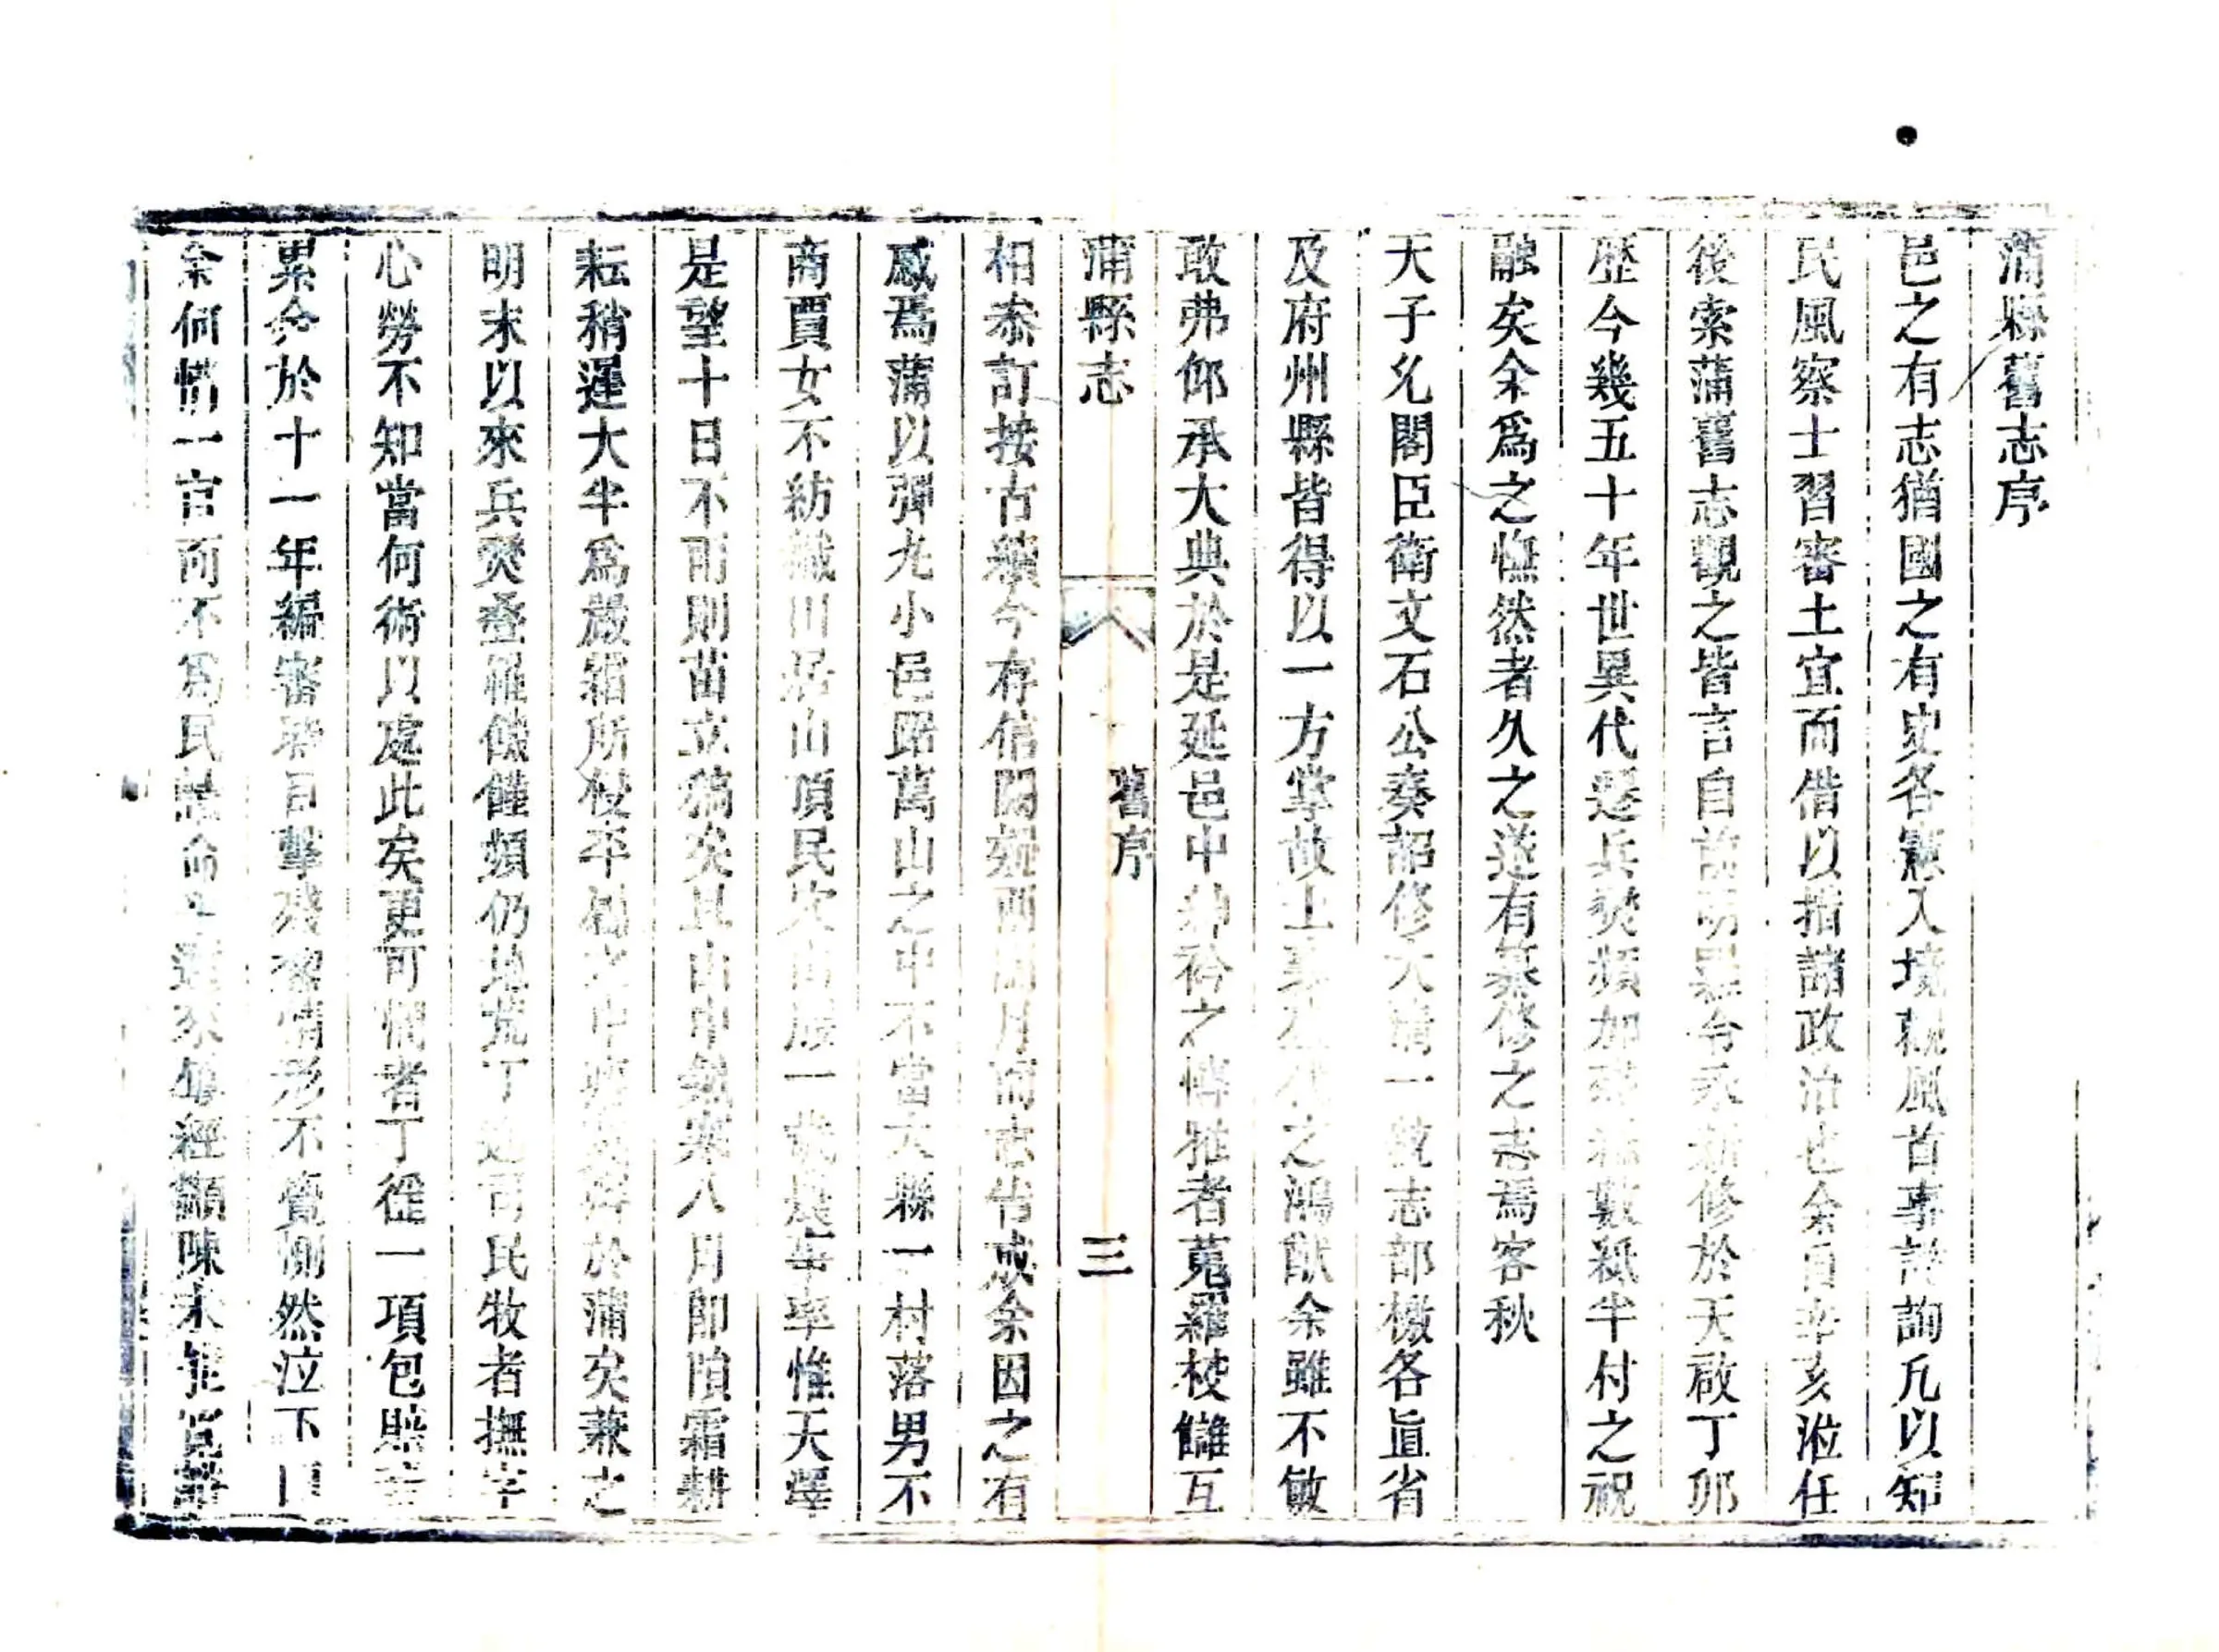 蒲縣舊志序
邑之有志猶國之有史各憲入境觀風首事諮詢凡以知
民風察士習審土宜而借以措諸政治也余自辛亥涖任
後索蒲舊志觀之皆言自前明累令永新修於天啟丁卯
歷今幾五十年世異代遷兵燹頻加殘編數紙半付之祝
融矣余爲之憮然者久之遂有纂修之志焉客秋
天子允閣臣衛文石公奏詔修大清一統志部檄各直省
及府州縣皆得以一方掌故上之鴻猷余雖不敏
敢弗仰承大典於是延邑中紳衿之博雅者蒐羅校讎互
蒲縣志
舊序
三
相叅訂按古續今存信闕疑兩閱月而志告成余因之有
感焉蒲以彈丸小邑踞萬山之中不當大縣一村落男不
商賈女不紡織川居山頂民穴而居一歲率惟天澤
是望十日不雨則苗立稿矣且山中氣寒八月即隕霜耕
耘稍遲大半爲嚴霜所杪平於蒲矣兼之
明末以來兵燹叠罹饑饉頻仍地荒丁逃司民牧者撫字
心勞不知當何術以處此矣更可憫者丁徭一項包賠
累余於十一年編審時目擊殘黎情形不覺惻然泣下
余何惜一官而不爲民請命經籲陳未